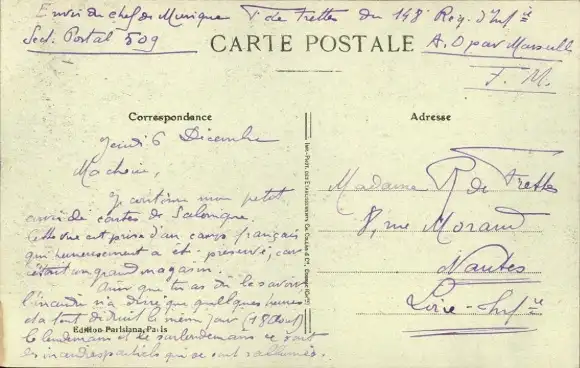 Envoi du chef de Musique V. de Frettes du 148e Rég. d'Infie
Sect. Postal 509
A.O par Marseille
F. M.
CARTE POSTALE
Correspondance
Adresse
Jeudi 6 Décembre
Ma cherie,
Je continue mon petit
envoi de cartes de Salonique.
Cette vue est prise d'un camp français
qui heureusement a été préservé, car
c'était un grand magasin.
Ainsi que tu as dû le savoir
l'incendie n'a duré que quelques heures
et a tout détruit le même jour (18 août)
le lendemain et le surlendemain ce sont
les incendies partiels qui se sont rallumés.
Edition Parisiana, Paris
Madame V de Frettes
8, rue Morand
Nantes
Loire-Infre